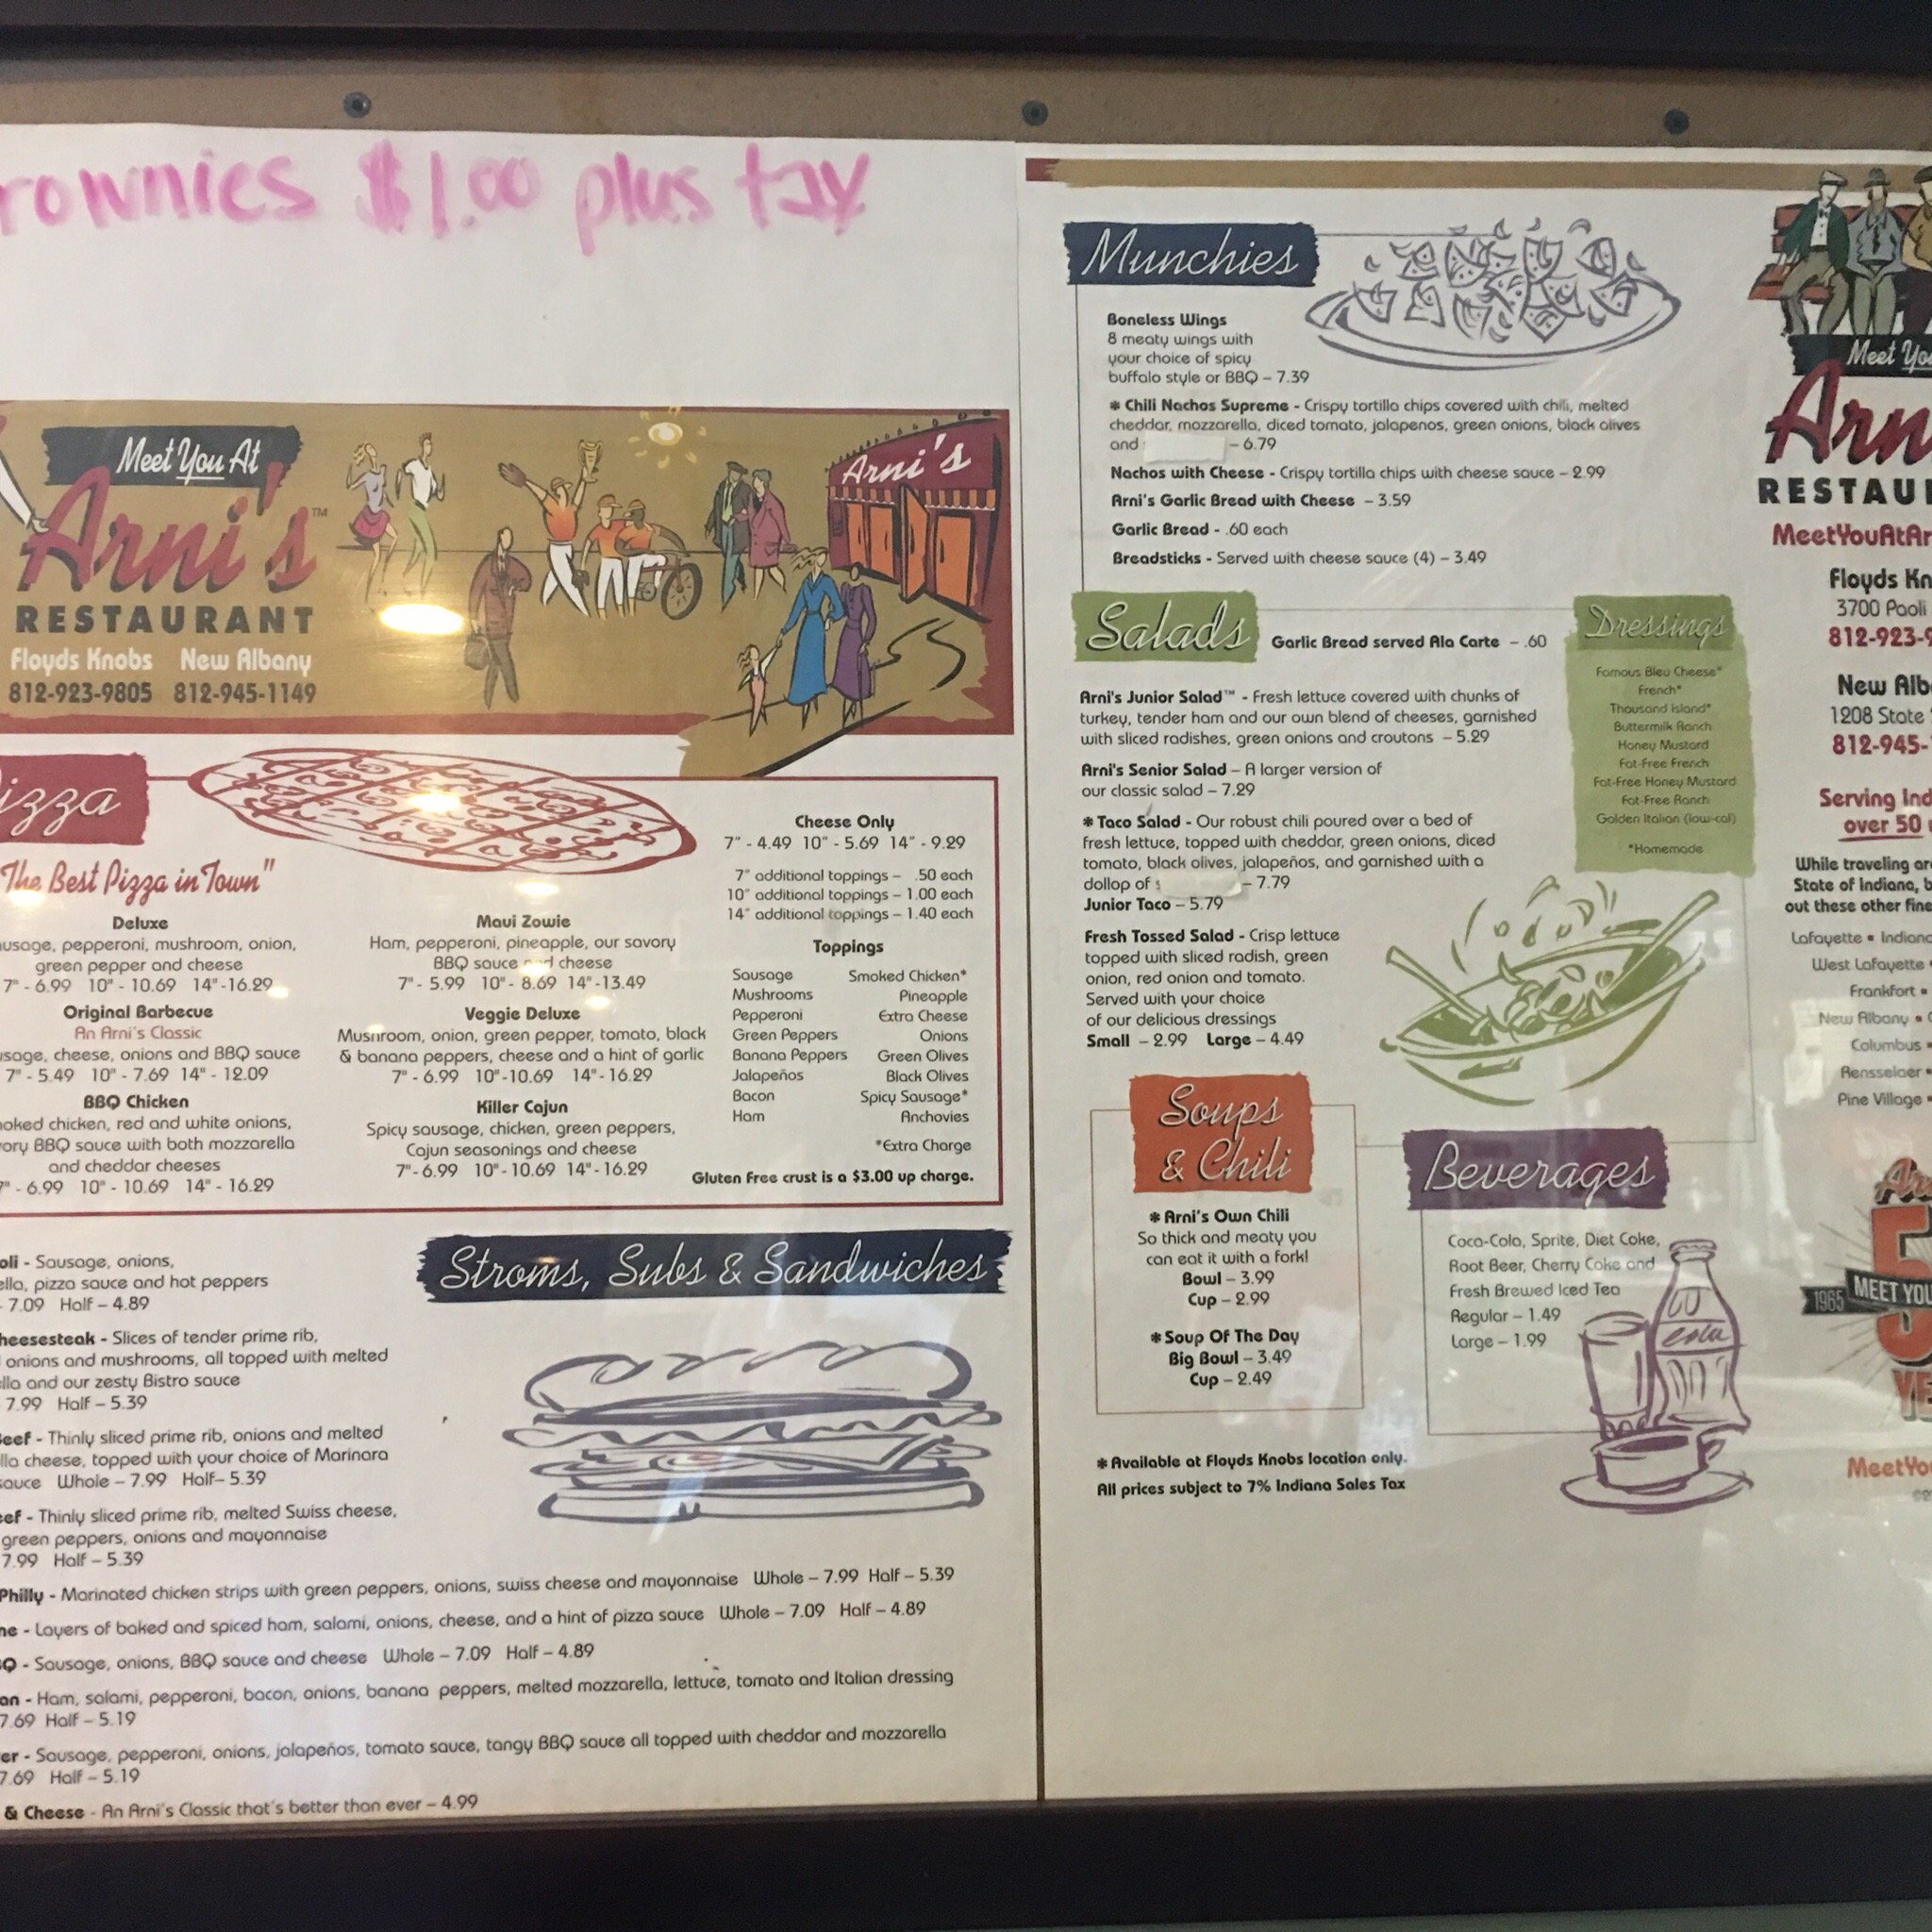 rownies $1.00 plus tax
Meet You At
Arni's™
RESTAURANT
Floyds Knobs New Albany
812-923-9805 812-945-1149
Arni's
izza
The Best Pizza in Town"
Deluxe
usage, pepperoni, mushroom, onion,
green pepper and cheese
7" - 6.99 10" - 10.69 14" -16.29
Original Barbecue
An Arni's Classic
usage, cheese, onions and BBQ sauce
7" - 5.49 10" - 7.69 14" - 12.09
BBQ Chicken
oked chicken, red and white onions,
ory BBQ sauce with both mozzarella
and cheddar cheeses
7" - 6.99 10" - 10.69 14" - 16.29
Maui Zowie
Ham, pepperoni, pineapple, our savory
BBQ sauce and cheese
7" - 5.99 10" - 8.69 14" -13.49
Veggie Deluxe
Mushroom, onion, green pepper, tomato, black
& banana peppers, cheese and a hint of garlic
7" - 6.99 10" -10.69 14" - 16.29
Killer Cajun
Spicy sausage, chicken, green peppers,
Cajun seasonings and cheese
7" - 6.99 10" - 10.69 14" - 16.29
Cheese Only
7" - 4.49 10" - 5.69 14" - 9.29
7" additional toppings – .50 each
10" additional toppings – 1.00 each
14" additional toppings – 1.40 each
Toppings
Sausage Smoked Chicken*
Mushrooms Pineapple
Pepperoni Extra Cheese
Green Peppers Onions
Banana Peppers Green Olives
Jalapeños Black Olives
Bacon Spicy Sausage*
Ham Anchovies
*Extra Charge
Gluten Free crust is a $3.00 up charge.
Stroms, Subs & Sandwiches
oli - Sausage, onions,
ella, pizza sauce and hot peppers
- 7.09 Half – 4.89
heesesteak - Slices of tender prime rib,
onions and mushrooms, all topped with melted
lla and our zesty Bistro sauce
7.99 Half – 5.39
Beef - Thinly sliced prime rib, onions and melted
lla cheese, topped with your choice of Marinara
sauce Whole – 7.99 Half– 5.39
eef - Thinly sliced prime rib, melted Swiss cheese,
green peppers, onions and mayonnaise
7.99 Half – 5.39
Philly - Marinated chicken strips with green peppers, onions, swiss cheese and mayonnaise Whole – 7.99 Half – 5.39
ne - Layers of baked and spiced ham, salami, onions, cheese, and a hint of pizza sauce Whole – 7.09 Half – 4.89
Q - Sausage, onions, BBQ sauce and cheese Whole – 7.09 Half – 4.89
an - Ham, salami, pepperoni, bacon, onions, banana peppers, melted mozzarella, lettuce, tomato and Italian dressing
7.69 Half – 5.19
er - Sausage, pepperoni, onions, jalapeños, tomato sauce, tangy BBQ sauce all topped with cheddar and mozzarella
7.69 Half – 5.19
& Cheese - An Arni's Classic that's better than ever – 4.99
Munchies
Boneless Wings
8 meaty wings with
your choice of spicy
buffalo style or BBQ – 7.39
* Chili Nachos Supreme - Crispy tortilla chips covered with chili, melted
cheddar, mozzarella, diced tomato, jalapenos, green onions, black olives
and – 6.79
Nachos with Cheese - Crispy tortilla chips with cheese sauce – 2.99
Arni's Garlic Bread with Cheese – 3.59
Garlic Bread - .60 each
Breadsticks - Served with cheese sauce (4) – 3.49
Salads
Garlic Bread served Ala Carte – .60
Arni's Junior Salad™ - Fresh lettuce covered with chunks of
turkey, tender ham and our own blend of cheeses, garnished
with sliced radishes, green onions and croutons – 5.29
Arni's Senior Salad – A larger version of
our classic salad – 7.29
* Taco Salad - Our robust chili poured over a bed of
fresh lettuce, topped with cheddar, green onions, diced
tomato, black olives, jalapeños, and garnished with a
dollop of – 7.79
Junior Taco – 5.79
Fresh Tossed Salad - Crisp lettuce
topped with sliced radish, green
onion, red onion and tomato.
Served with your choice
of our delicious dressings
Small – 2.99 Large – 4.49
Dressings
Famous Bleu Cheese*
French*
Thousand Island*
Buttermilk Ranch
Honey Mustard
Fat-Free French
Fat-Free Honey Mustard
Fat-Free Ranch
Golden Italian (low-cal)
*Homemade
Soups
& Chili
* Arni's Own Chili
So thick and meaty you
can eat it with a fork!
Bowl – 3.99
Cup – 2.99
* Soup Of The Day
Big Bowl – 3.49
Cup – 2.49
Beverages
Coca-Cola, Sprite, Diet Coke,
Root Beer, Cherry Coke and
Fresh Brewed Iced Tea
Regular – 1.49
Large – 1.99
cola
* Available at Floyds Knobs location only.
All prices subject to 7% Indiana Sales Tax
Meet Yo
Arn
RESTAU
MeetYouAtAr
Floyds Kn
3700 Paoli
812-923-9
New Alb
1208 State
812-945-
Serving Ind
over 50
While traveling ar
State of Indiana, b
out these other fine
Lafayette • Indiana
West Lafayette •
Frankfort •
New Albany •
Columbus •
Rensselaer •
Pine Village •
Ar
5
1965 MEET YOU
YE
MeetYo